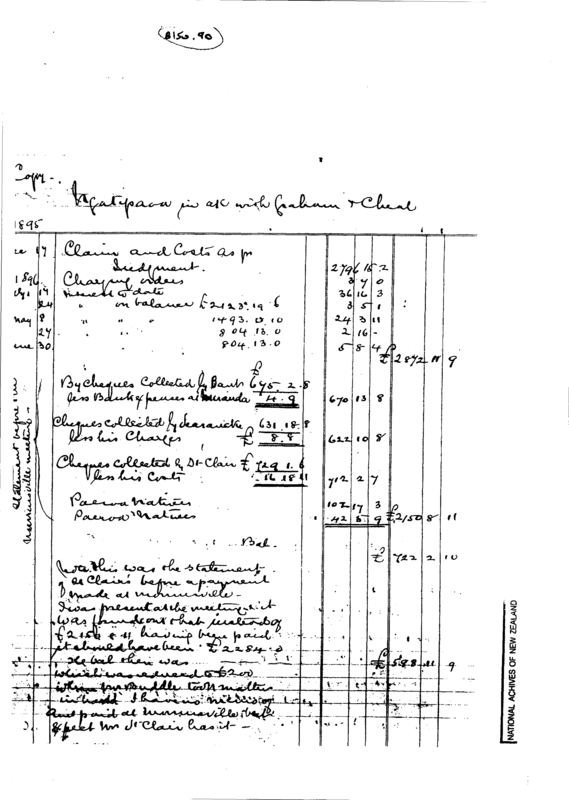 £150.90
Copy -
Ngatipaoa in a/c with Graham & Cheal
1895
17 Claim and Costs as pr
Judgment. 2796 15 2
1896 Charging orders 3 7 0
14 Interest to date 36 16 3
24 " on balance £2123.19.6 3 5 1
May 8 " " 1493.10.10 24 3 11
27 " " 804.13.0 2 16 -
30 804.13.0 5 8 4
£2872 11 9
By Cheques Collected by Bank £675.2.8
less Bank expenses at Miranda 4.9 670 13 8
Cheques collected by 631.18.8
less his Charges £ 8.8 622 10 8
Cheques collected by St Clair £729.1.6
less his Costs 16 18 11 712 2 7
Paeroa Natives 102 17 3
Paeroa Natives 42 3 9 £2150 8 11
Bal. £722 2 10
Statement before
Morrinsville meeting -
Note this was the statement
of St Clair's before a payment
made at Morrinsville -
I was present at the meeting & it
was found out that instead of
£2150 8 11 having been paid
it should have been £2284
The bal then was £588 11 9
which was reduced to £200
when Mr Buddle took matter
in hand
and paid at Morrinsville
expect Mr St Clair has it -
NATIONAL ACHIVES OF NEW ZEALAND